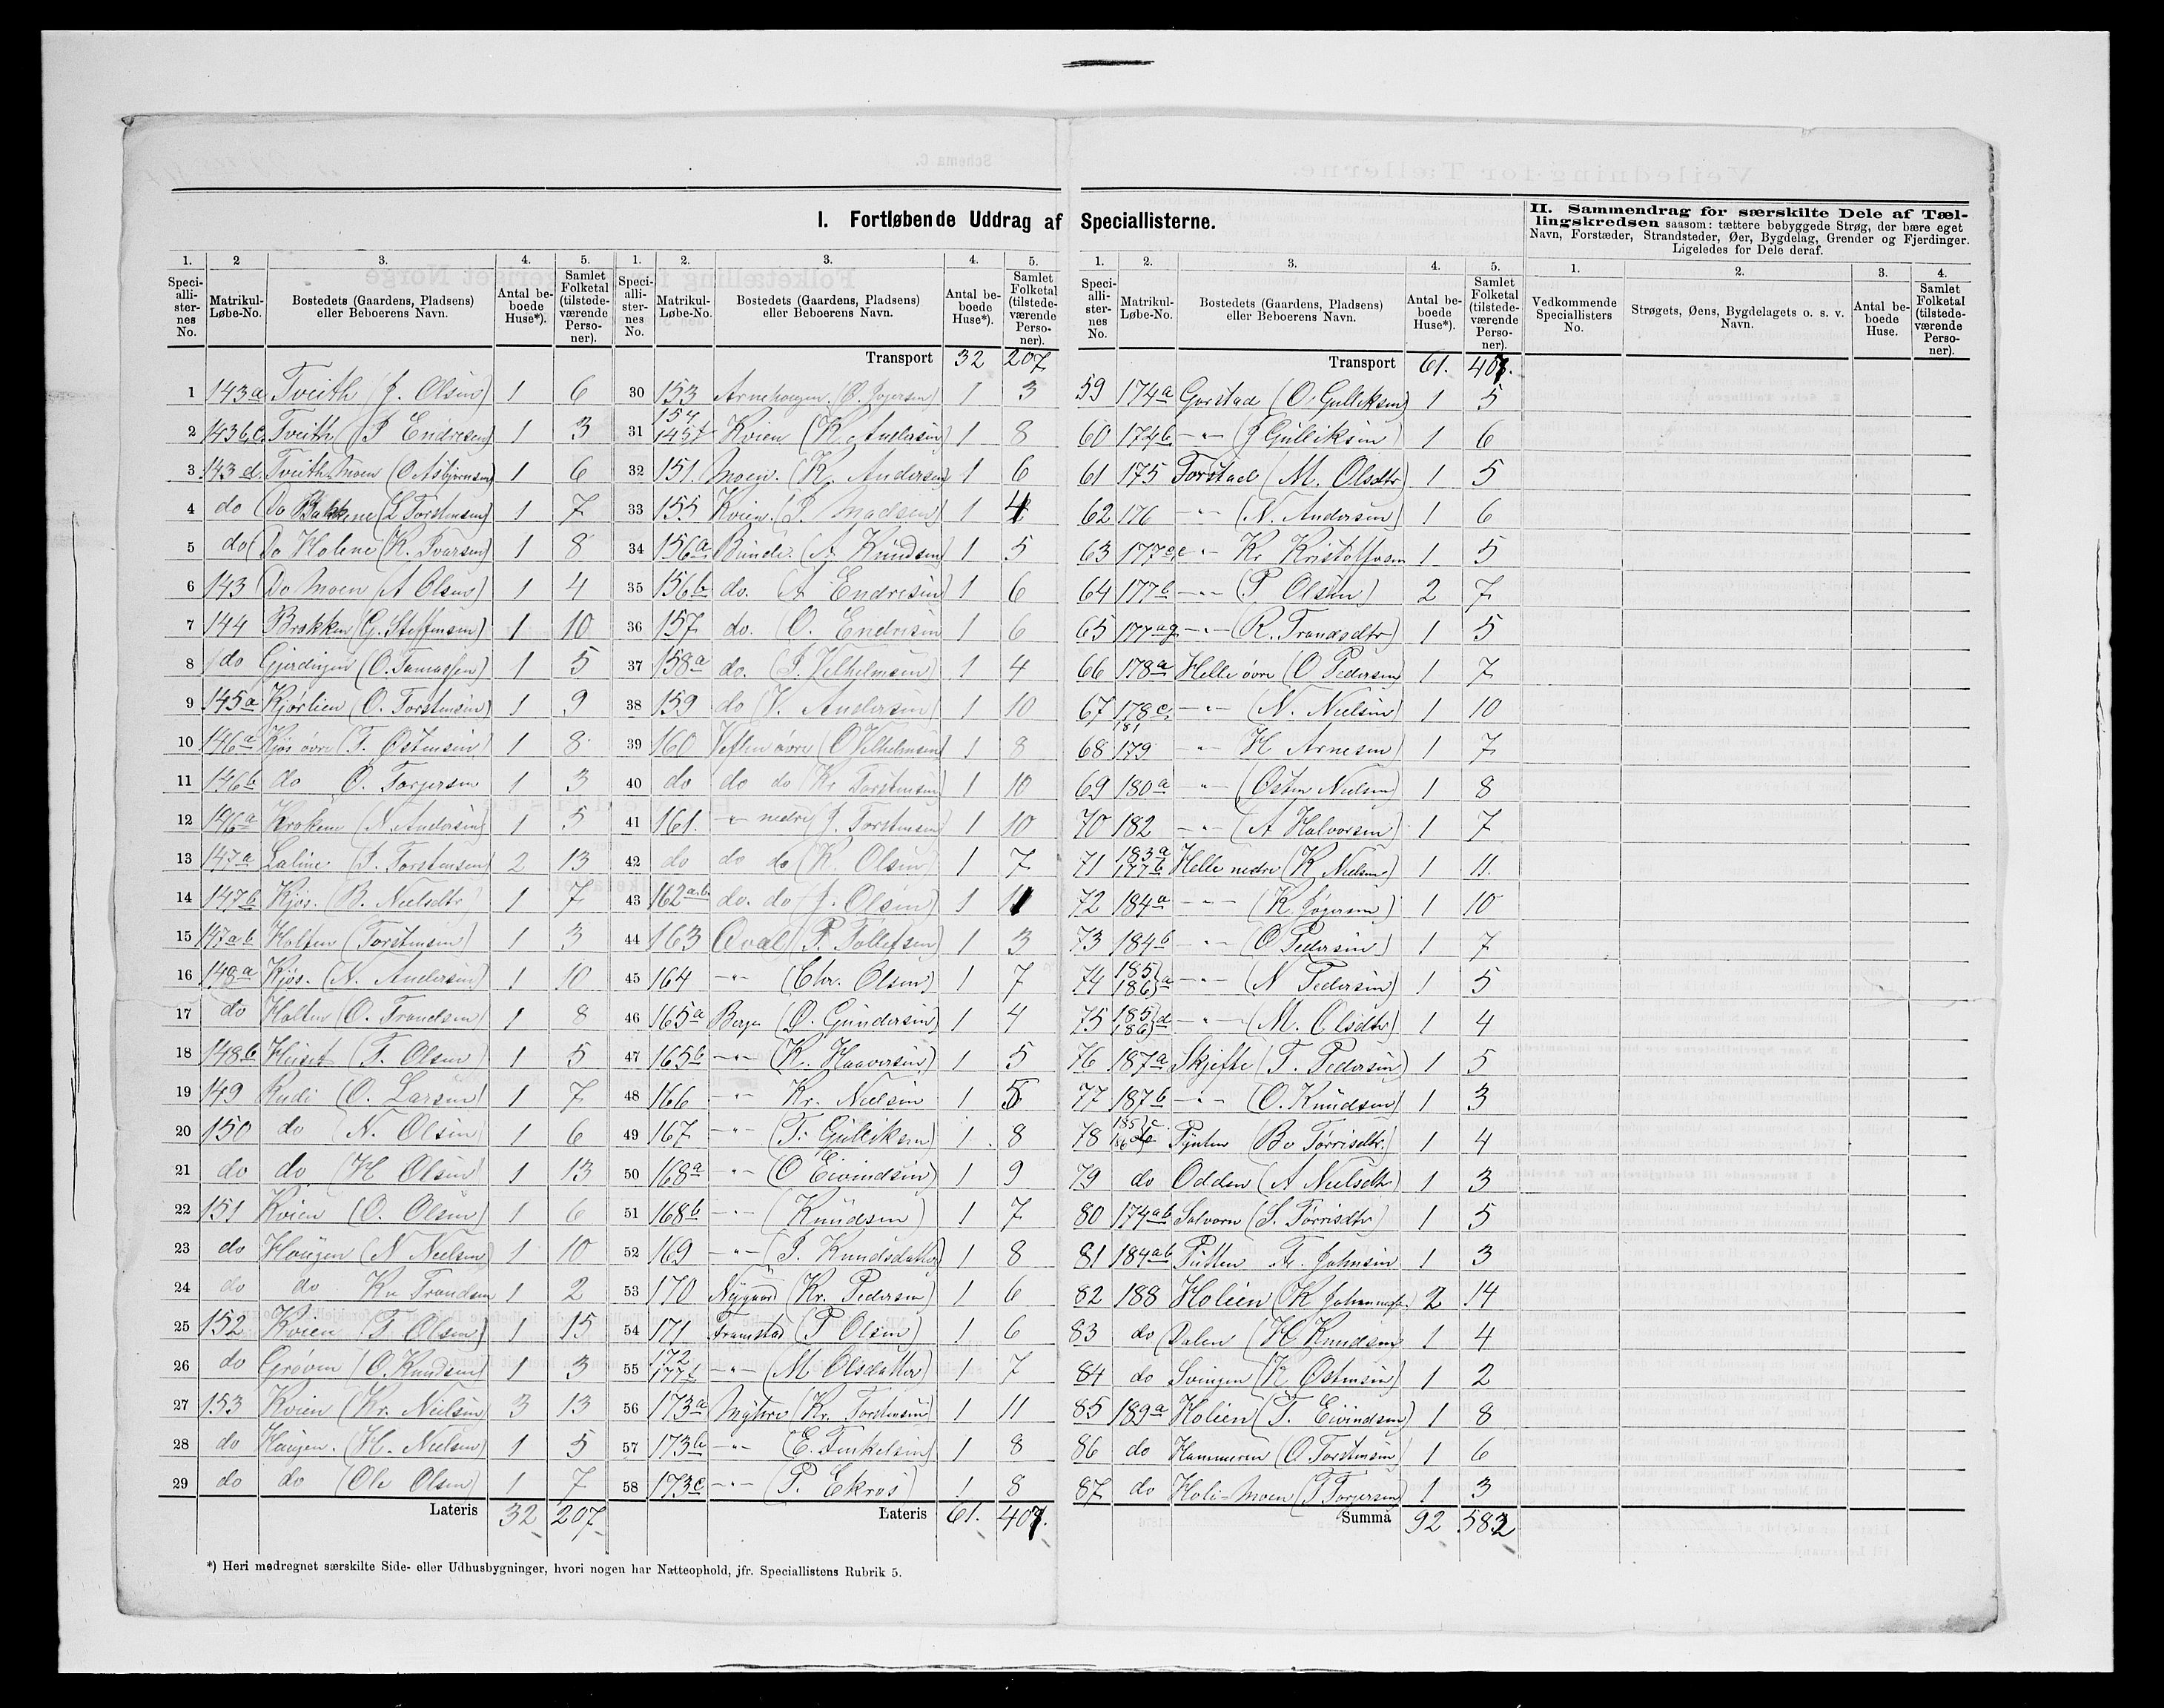 I. Fortløbende Uddrag af Speciallisterne.
II. Sammendrag for særskilte Dele af Tællingskredsen saasom: tættere bebyggede Strøg, der bære eget
Navn, Forstæder, Strandsteder, Øer, Bygdelag, Grender og Fjerdinger.
Ligeledes for Dele deraf.
1. 2 3. 4. 5.
Speciallisternes No. Matrikul-Løbe-No. Bostedets (Gaardens, Pladsens) eller Beboerens Navn. Antal beboede Huse*). Samlet Folketal (tilstedeværende Personer).
1 143a Tveith (J. Olsen) 1 6
2 143b,c Tveith (P Endresen) 1 3
3 143d. Tveith Moen (O Asbjørnsen) 1 6
4 do Do Bakkene (L Torstensen) 1 7
5 do Do Holene (K. Ivarsen) 1 8
6 143 Do Moen (A Olsen) 1 4
7 144 Brokken (G. Steffensen) 1 10
8 do Gjerdingen (O. Tamassen) 1 5
9 145a Kjørlien (O. Torstensen) 1 9
10 146a Kjøs øvre (T. Østensen) 1 8
11 146b do O. Torgersen 1 3
12 146a Kroken (N. Andersen) 1 5
13 147a Laline (P. Torstensen) 2 13
14 147b Kjøs. (B. Nielsdtr) 1 7
15 147ab Holten (Torstensen) 1 3
16 148a Kjøs. (N. Andersen) 1 10
17 do Holten (O. Trondsen) 1 8
18 148b Huset (T. Olsen) 1 5
19 149 Rudi (O. Larsen) 1 7
20 150 do (N. Olsen) 1 6
21 do do (H Olsen) 1 13
22 151 Kvien (O. Olsen) 1 6
23 do Haugen (N Nielsen) 1 10
24 do do Kr Trondsen 1 2
25 152 Kvien (T Olsen) 1 15
26 do Grøven (O. Knudsen) 1 3
27 153 Kvien (Kr. Neilsen) 3 13
28 do Haugen. (H. Nielsen) 1 5
29 do do (Ole Olsen) 1 7
Lateris 32 207
1. 2. 3. 4. 5.
Speciallisternes No. Matrikul-Løbe-No. Bostedets (Gaardens, Pladsens) eller Beboerens Navn. Antal beboede Huse*). Samlet Folketal (tilstedeværende Personer).
Transport 32 207
30 153 Arnehaugen (O. Jogersen) 1 3
31 154 Kvien (K. Andersen) 1 8
32 151. Moen. (K. Andersen) 1 6
33 155 Kvien. (P. Madsen) 1 4
34 156a Bunde. (A. Knudsen) 1 5
35 156b do. (A Endresen) 1 6
36 157 do. O. Endresen 1 6
37 158a do. (P. Vilhelmsen) 1 4
38 159 do (V. Andersen) 1 10
39 160 Veften øvre (O Vilhelmsen) 1 8
40 do do do (Kr Torstensen) 1 10
41 161. " nedre (J. Torstensen) 1 10
42 do do do (K. Olsen) 1 7
43 162a.b. do. do (J. Olsen) 1 11
44 163 Qval (P. Tollefsen) 1 3
45 164 -"- (Chr. Olsen) 1 7
46 165a Berge (O. Gundersen) 1 4
47 165b -"- (K. Haaversen) 1 5
48 166 -"- Kr. Nielsen 1 5
49 167 -"- (T. Gulliksen) 1 8
50 168a -"- (O Eivindsen) 1 9
51 168b -"- (Knudsen) 1 7
52 169 -"- (P. Knudsdatter) 1 8
53 170 Nygaard (Kr. Pedersen) 1 6
54 171 Framstad (P Olsen) 1 6
55 172 177f -"- (M Olsdatter) 1 7
56 173a Myhre (Kr. Torstensen) 1 11
57 173b -"- (E. Finkelsen) 1 8
58 173c -"- (P. Ekros) 1 8
Lateris 61. 401.
1. 2. 3. 4. 5.
Speciallisternes No. Matrikul-Løbe-No. Bostedets (Gaardens, Pladsens) eller Beboerens Navn. Antal beboede Huse*). Samlet Folketal (tilstedeværende Personer).
Transport 61. 401.
59 174a Gorstad (O. Gulliksen) 1 5
60 174b -"- (J Gulliksen) 1 6
61 175 Forstad (M. Olsdtr 1 5
62 176 -"- (N. Andersen) 1 6
63 177 -"- Kr Kristoffersen 1 5
64 177b -"- (P. Olsen) 2 7
65 177ag -"- (R. Trondsdtr) 1 5
66 178a Helle øvre (O Pedersen) 1 7
67 178c. -"- (N. Nielsen) 1 10
68 181 179 -"- H Arnesen) 1 7
69 180a -"- (Østen Nielsen) 1 8
70 182 -"- (A Halvorsen) 1 7
71 183a 177b Helle nedre (K Nielsen) 1 11.
72 184a -"- (K. Jøgersen) 1 10
73 184b -"- (O Pedersen) 1 7
74 185 186}a -"- (N Pedersen) 1 5
75 185 186}d -"- (M. Olsdtr) 1 4
76 187a Skjefte (T. Pedersen) 1 5
77 187b -"- (O. Knudsen) 1 3
78 185 186}c Pynten (Bo Torrisdtr.) 1 4
79 do Odden (A Nielsdtr) 1 3
80 174ab Salvorn (S. Torrisdtr) 1 5
81 184ab Putten Fr. Johnsen 1 3
82 188 Holien (K Johannesen.) 2 14
83 do Dalen (H Knudsen) 1 4
84 do Svingen (K Østensen) 1 2
85 189a Holien (T. Eivindsen) 1 8
86 do Hammeren (O Torstensen) 1 6
87 do Holi-Moen (T Torgersen) 1 3
Summa 92 582
1. 2. 3. 4.
Vedkommende Speciallisters No. Strøgets, Øens, Bygdelagets o. s. v. Navn. Antal beboede Huse. Samlet Folketal (tilstedeværende Personer).
*) Heri medregnet særskilte Side- eller Udhusbygninger, hvori nogen har Natteophold, jfr. Speciallistens Rubrik 5.